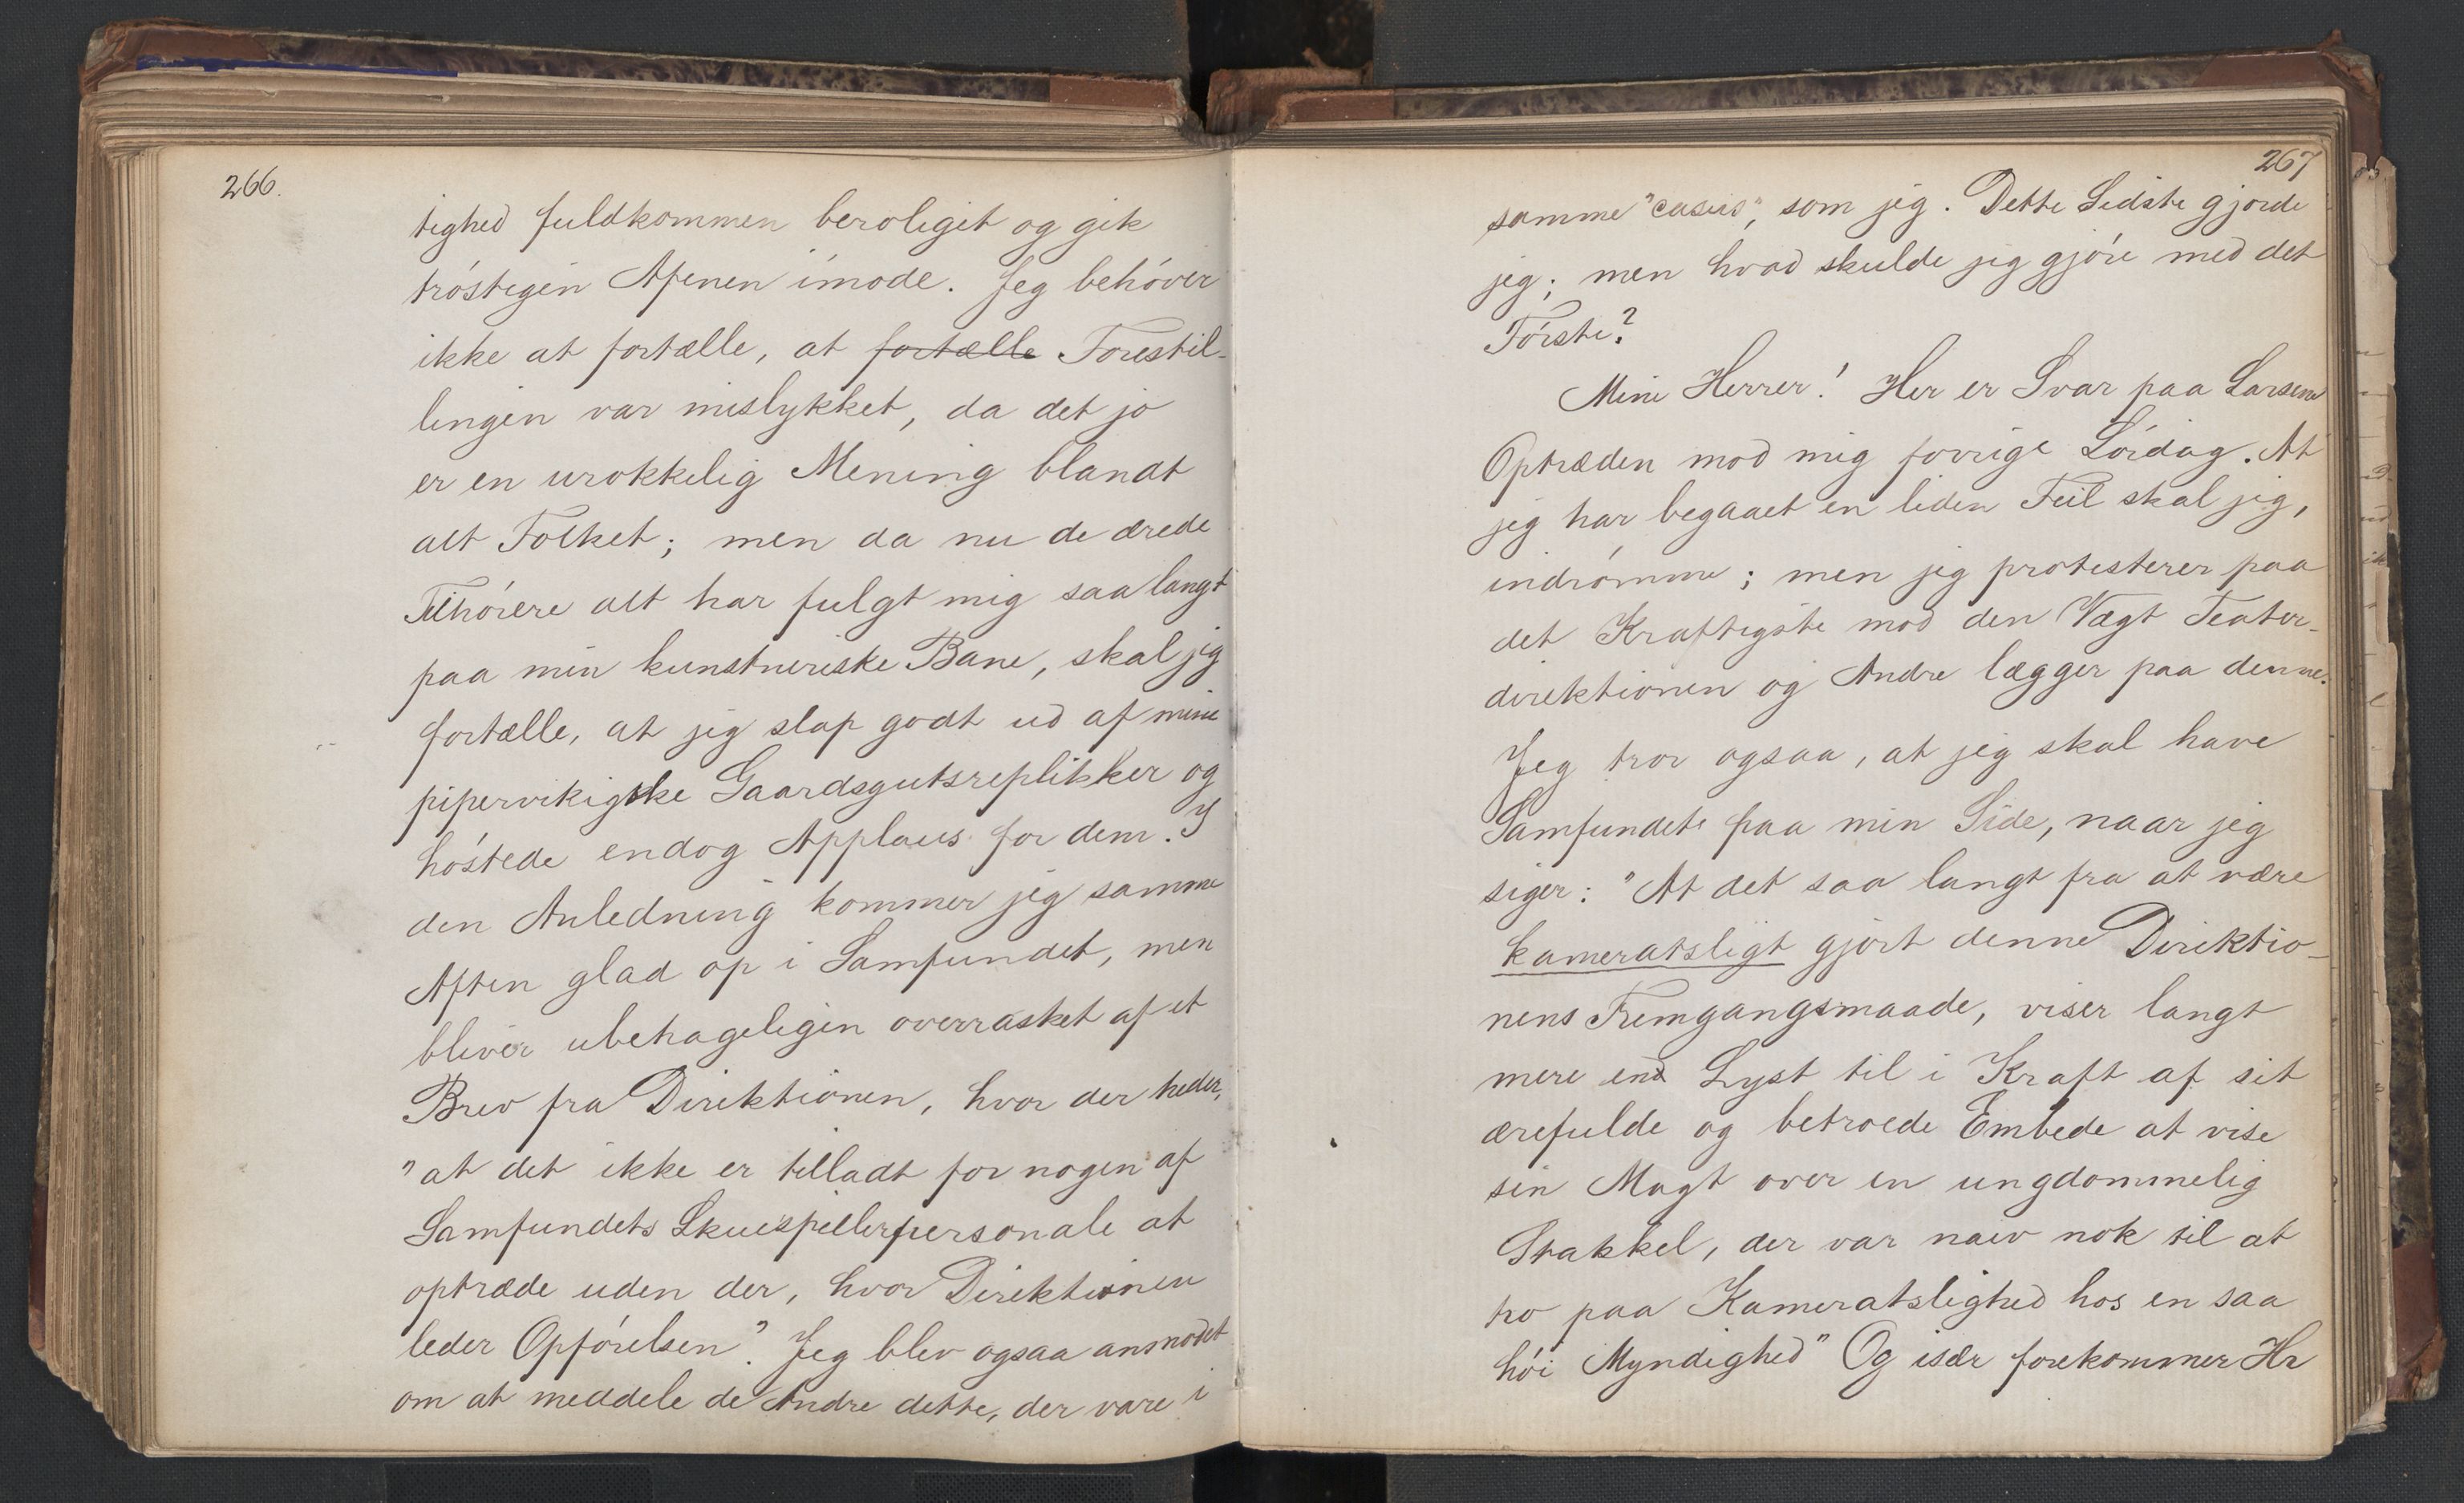 266.
tighed fuldkommen beroliget og gik
tröstigen Aftenen imöde. Jeg behöver
ikke at fortælle, at fortælle Forestil-
lingen var mislykket, da det jo
er en urokkelig Mening blandt
alt Folket; men da nu de ærede
Tilhörere alt har fulgt mig saa langt
paa min kunstneriske Bane, skal jeg
fortælle, at jeg slap godt ud af mine
pipervikigske Gaardsgutsreplikker og
höstede endog Applaus for dem. I
den Anledning kommer jeg samme
Aften glad op i Samfundet, men
bliver ubehageligen overrasket af et
Brev fra Direktionen, hvor der heder,
"at det ikke er tilladt for nogen af
Samfundets Skuespillerpersonale at
optræde uden der, hvor Direktionen
leder Opförelsen". Jeg blev ogsaa anmodet
om at meddele de Andre dette, der vare i
267
samme "casus", som jeg. Dette Sidste gjorde
jeg; men hvad skulde jeg gjöre med det
Förste?
Mine Herrer! Her er Svar paa Larsens
Optræden mod mig forrige Lördag. At
jeg har begaaet en liden Feil skal jeg,
indrömme; men jeg protesterer paa
det Kraftigste mod den Vægt Teater-
direktionen og Andre lægger paa denne.
Jeg tror ogsaa, at jeg skal have
Samfundet paa min Side, naar jeg
siger: "At det saa langt fra at være
kameratsligt gjört denne Direktio-
nens Fremgangsmaade, viser langt
mere end Lyst til i Kraft af sit
ærefulde og betroede Embede at vise
sin Magt over en ungdommelig
Stakkel, der var naiv nok til at
tro paa Kameratslighed hos en saa
höi Myndighed" Og især forekommer Hr